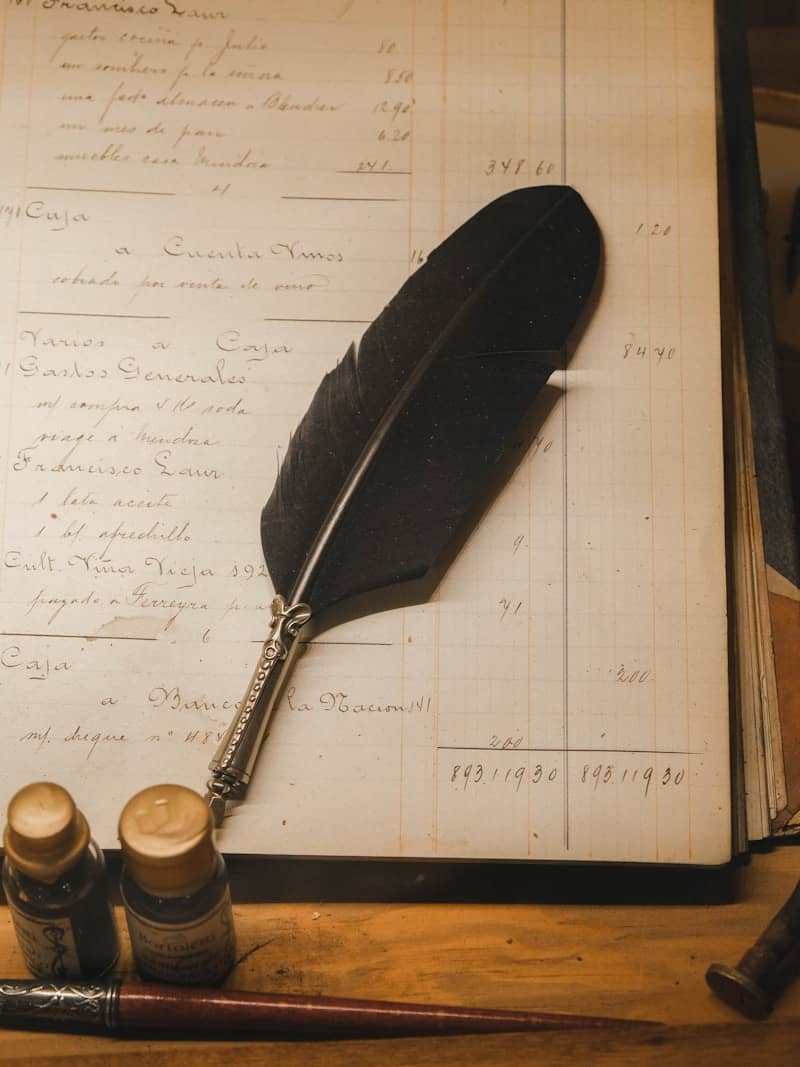 Francisco Laur
gastos cocina p. Julio 80
un sombrero p. la señora 8.50
una almacen a 12.90
un mes de pan 6.20
muebles casa Mendoza 241 348 60
4
Caja
a Cuenta Vinos 16 120
cobrado por venta de vino
Varios a Caja 84 70
Gastos Generales
compra soda
viage a Mendoza 70
Francisco Laur
1 lata aceite
1 afrechillo 9
Cult. Viña Vieja 192
pagado a Ferreyra p. 71
6
Caja 200
a Banco la Nacion 141
cheque nº 200
893.119 30 893.119 30
Bortoletti